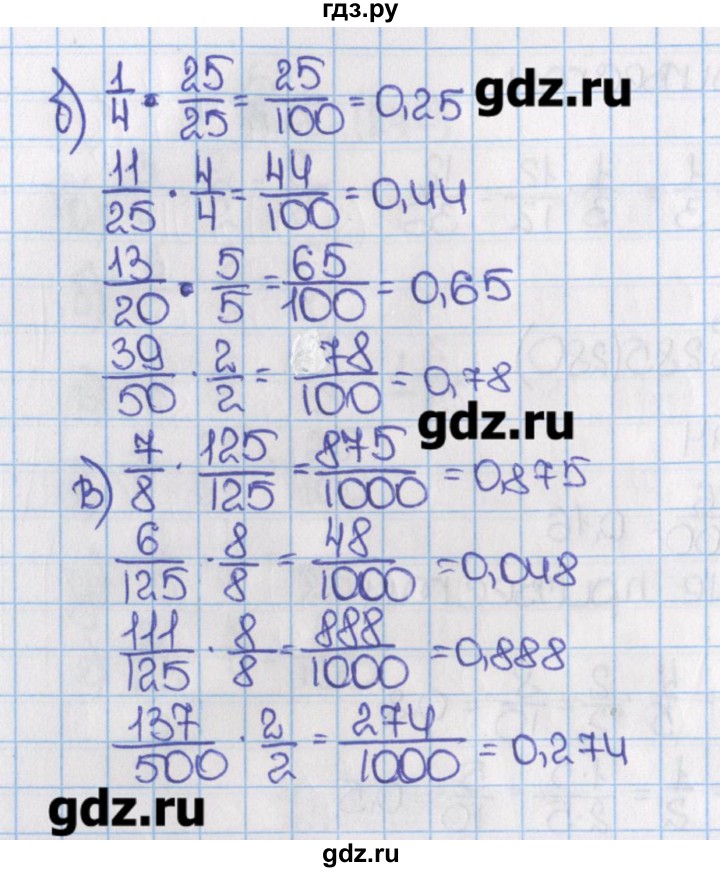 гдз.ру
б) 1/4 · 25/25 = 25/100 = 0,25
gdz.ru
11/25 · 4/4 = 44/100 = 0,44
13/20 · 5/5 = 65/100 = 0,65
39/50 · 2/2 = 78/100 = 0,78
gdz.ru
в) 7/8 · 125/125 = 875/1000 = 0,875
6/125 · 8/8 = 48/1000 = 0,048
111/125 · 8/8 = 888/1000 = 0,888
137/500 · 2/2 = 274/1000 = 0,274
gdz.ru
gdz.ru